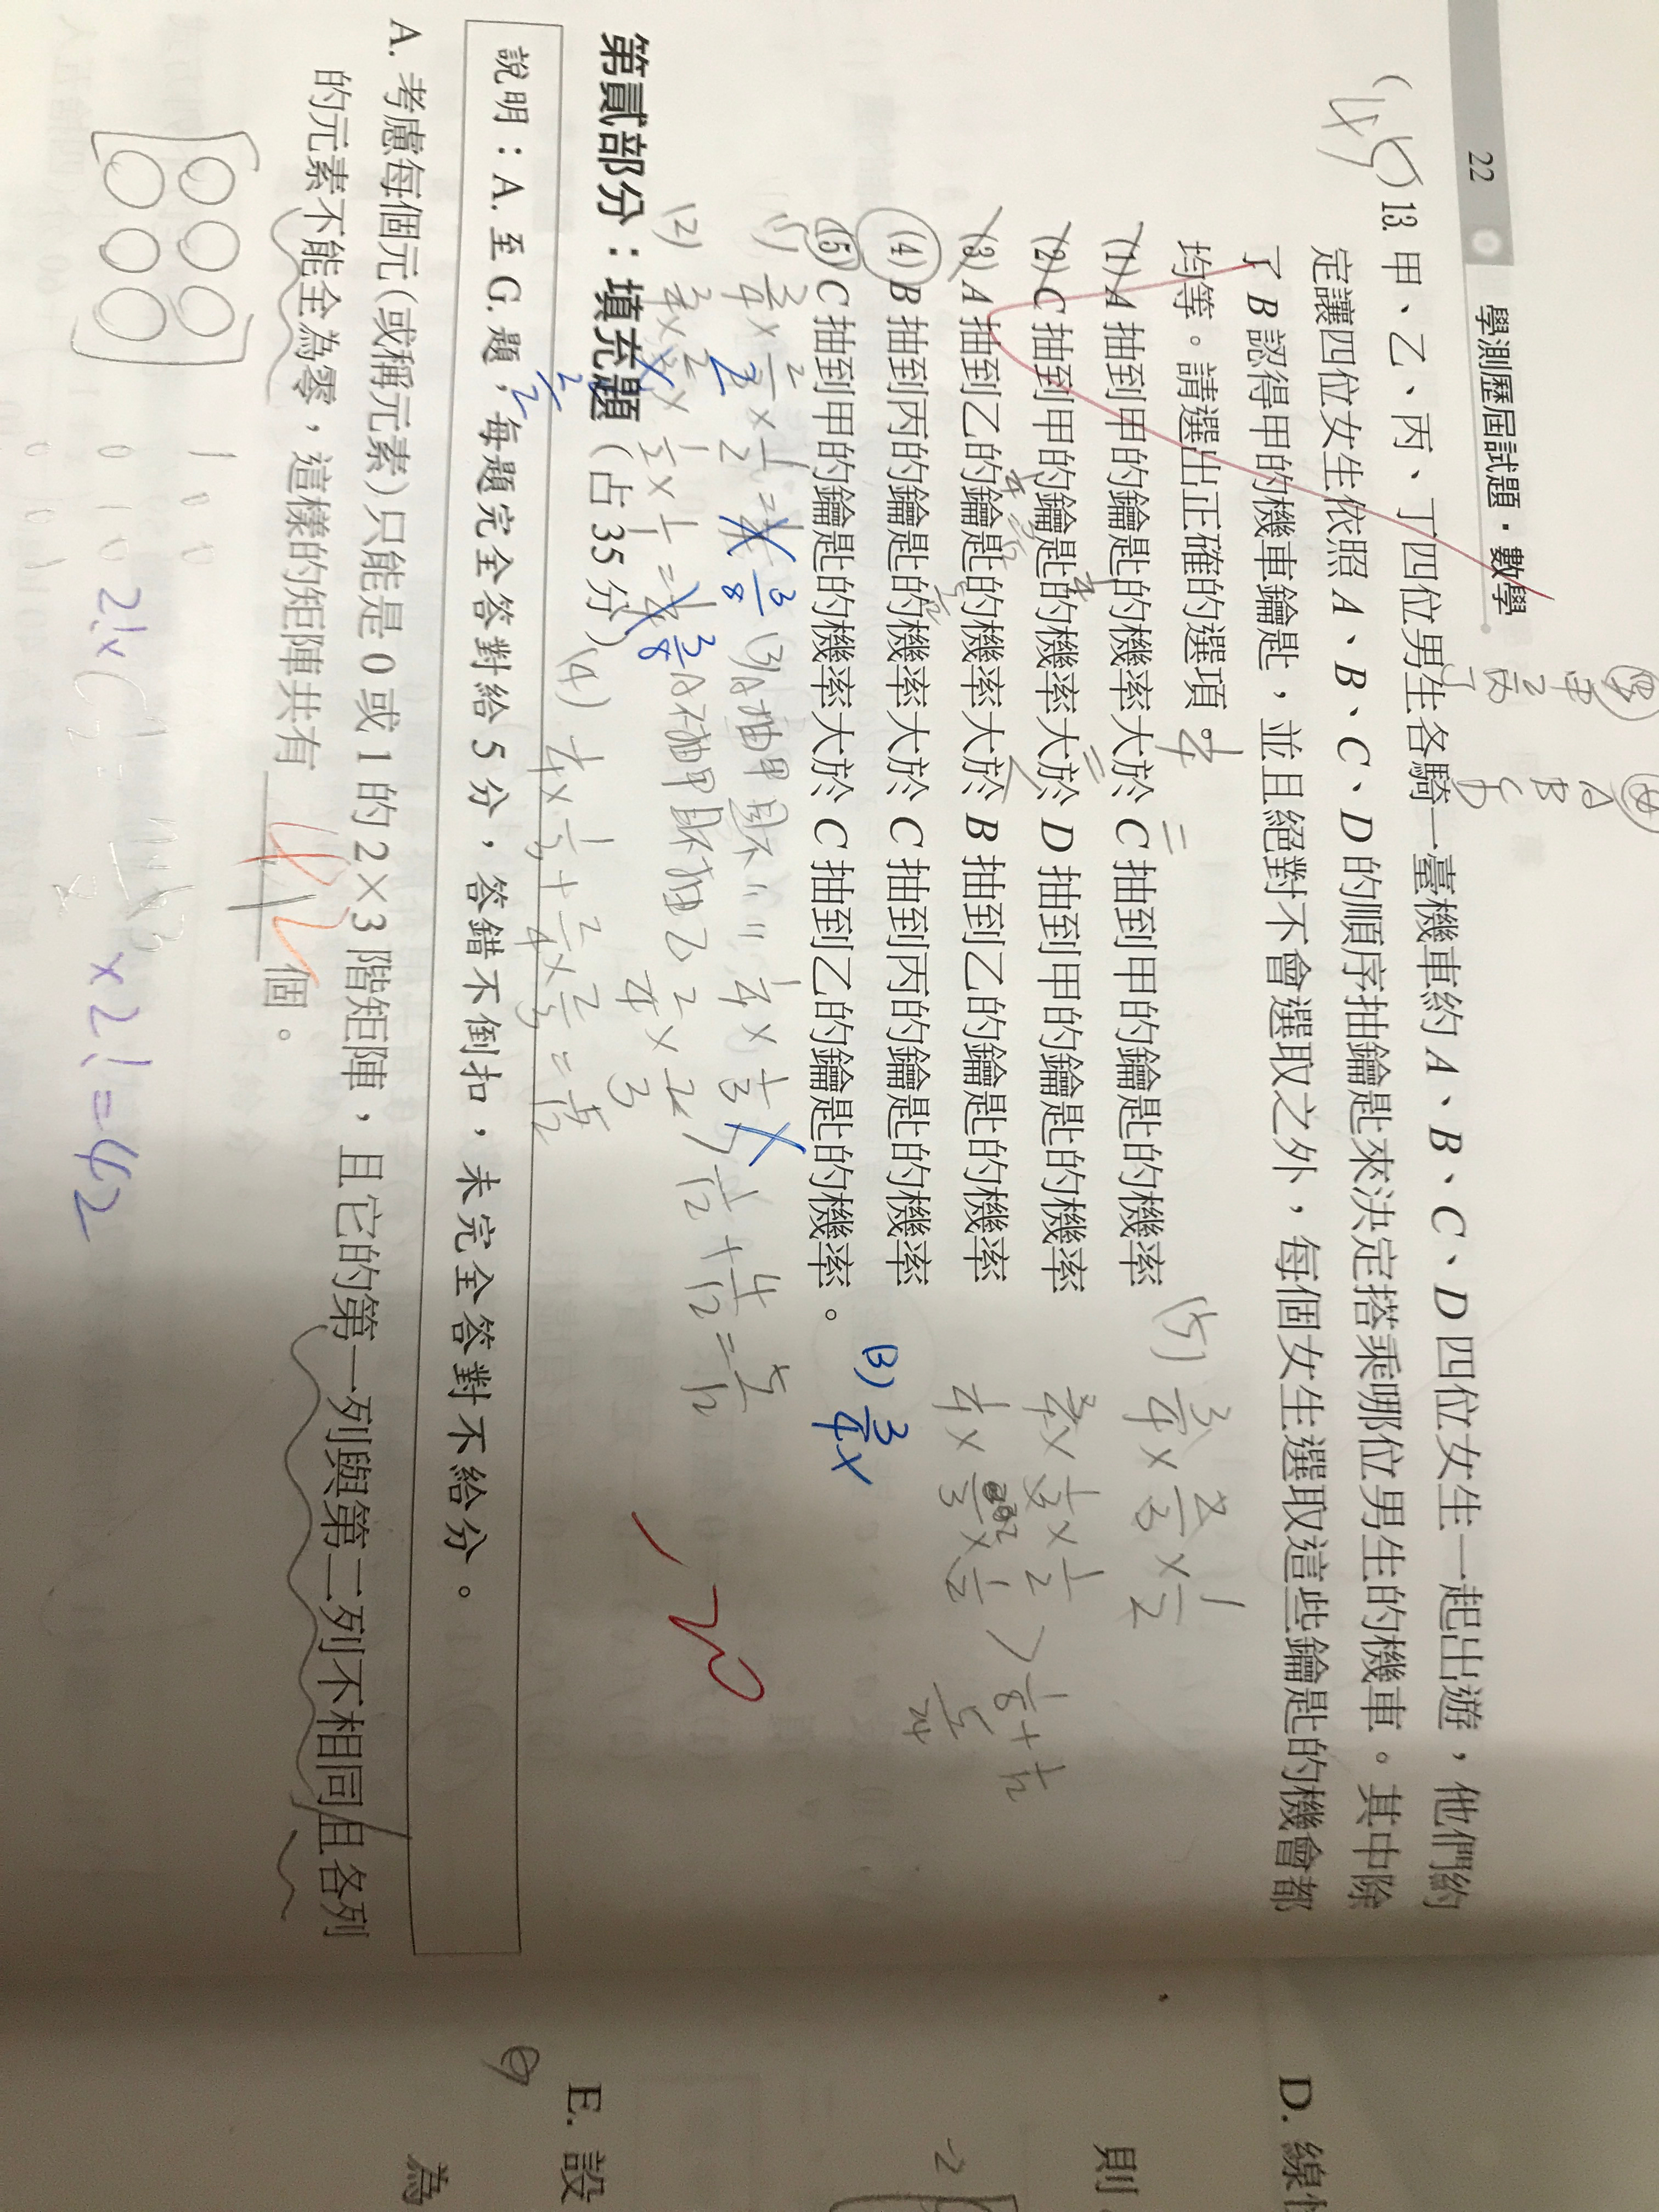 22 學測歷屆試題・數學
(45)13. 甲、乙、丙、丁四位男生各騎一臺機車約 A、B、C、D 四位女生一起出遊，他們約
定讓四位女生依照 A、B、C、D 的順序抽鑰匙來決定搭乘哪位男生的機車。其中除
了 B 認得甲的機車鑰匙，並且絕對不會選取之外，每個女生選取這些鑰匙的機會都
均等。請選出正確的選項。
(1) A 抽到甲的鑰匙的機率大於 C 抽到甲的鑰匙的機率
(2) C 抽到甲的鑰匙的機率大於 D 抽到甲的鑰匙的機率
(3) A 抽到乙的鑰匙的機率大於 B 抽到乙的鑰匙的機率
(4) B 抽到丙的鑰匙的機率大於 C 抽到丙的鑰匙的機率
(5) C 抽到甲的鑰匙的機率大於 C 抽到乙的鑰匙的機率。
(5) 3/4 × 2/3 × 1/2
3/4 × 1/3 × 1/2
1/8 + 1/12
5/24
B) 3/4 ×
3/8 (3) A抽甲
1/4 × 1/3
1/12 + 4/12 = 5/12
(4) 1/4 × 1/3 + 2/4 × 2/3 = 5/12
第貳部分：填充題（占 35 分）
說明：A. 至 G. 題，每題完全答對給 5 分，答錯不倒扣，未完全答對不給分。
A. 考慮每個元(或稱元素)只能是 0 或 1 的 2×3 階矩陣，且它的第一列與第二列不相同且各列
的元素不能全為零，這樣的矩陣共有 42 個。
×2!=42
D. 線
則
E. 設
為